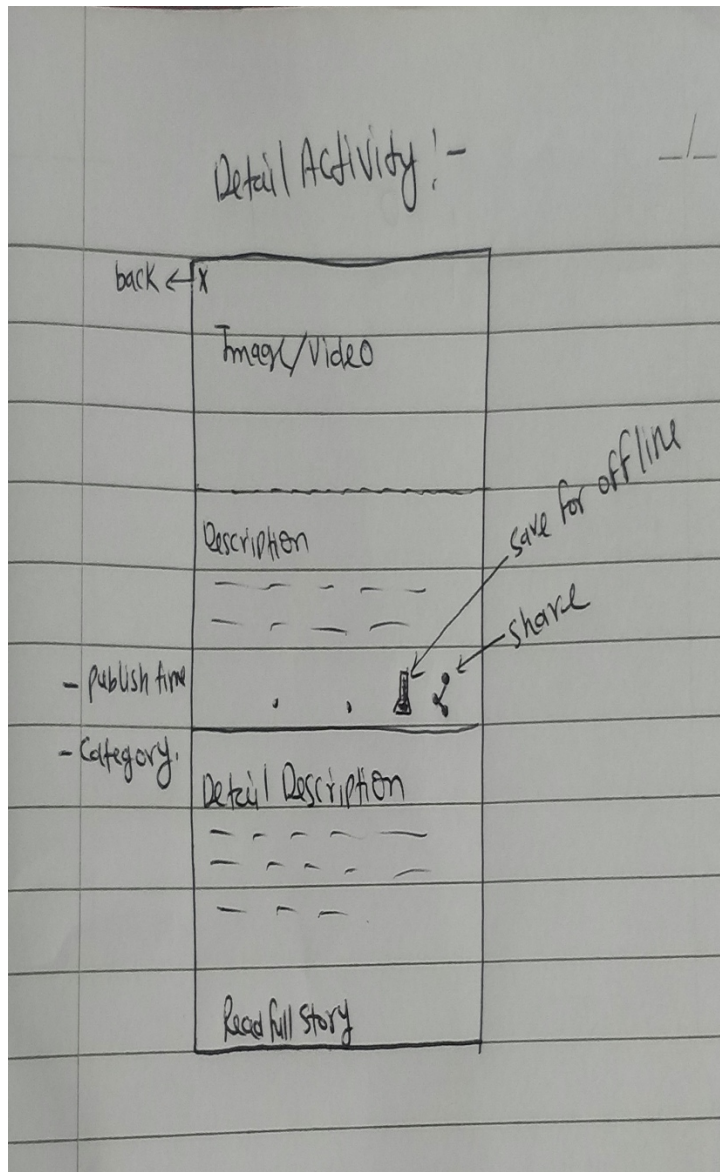 Detail Activity :-
back ← x
Image/Video
save for offline
Description
share
- Publish time
- Category.
Detail Description
Read full story